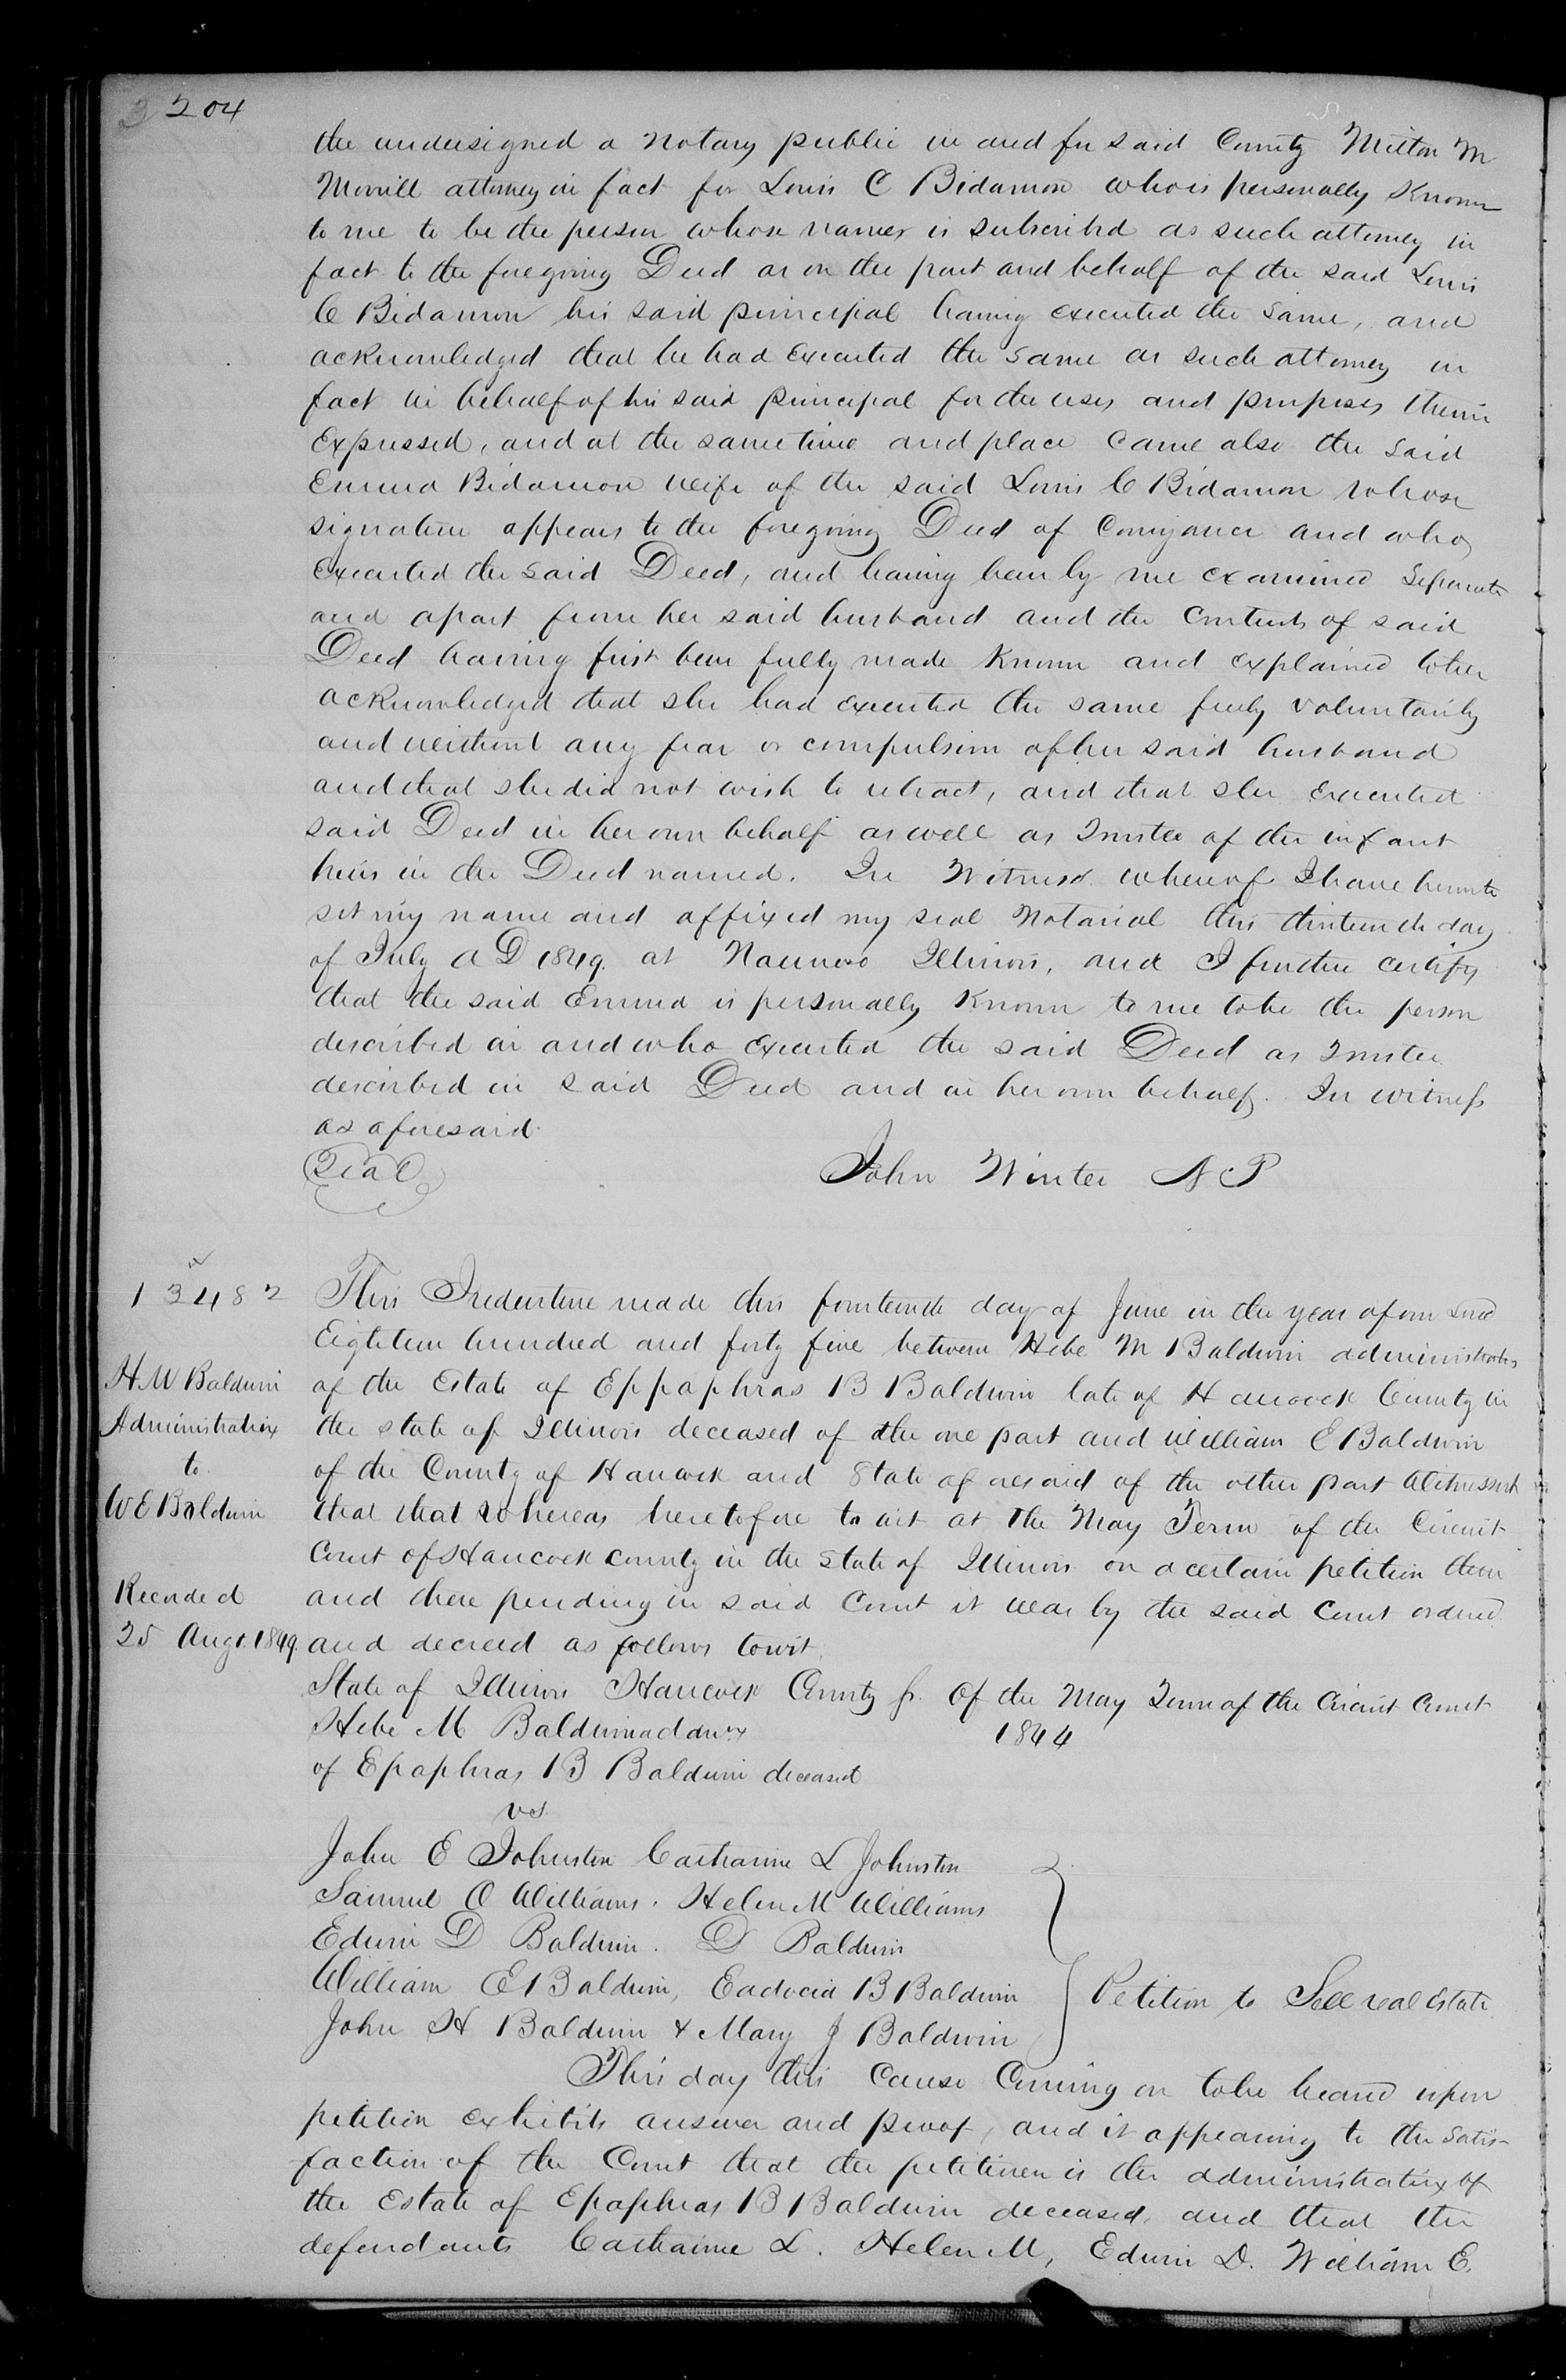 204
the undersigned a Notary public in and for said County Milton M
Morrill attorney in fact for Louis C Bidamon who is personally Known
to me to be the person whose names is subscribed as such attorney in
fact to the foregoing Deed as on the part and behalf of the said Louis
C Bidamon his said principal having executed the same, and
acknowledged that he had Executed the same as such attorney in
fact in behalf of his said principal for the uses and purposes therein
Expressed, and at the same time and place Came also the said
Emma Bidamon wife of the said Louis C Bidamon whose
signature appears to the foregoing Deed of Conveyance and who
executed the said Deed, and having been by me examined Separate
and apart from her said husband and the Contents of said
Deed having first been fully made Known and explained to her
acknowledged that she had executed the same freely voluntarily
and without any fear or compulsion of her said husband
and that she did not wish to retract, and that she Executed
said Deed in her own behalf as well as Trustee of the infant
heirs in the Deed named. In Witness whereof I have hereunto
set my name and affixed my seal Notarial this thirteenth day
of July A D 1849. at Nauvoo Illinois, and I further certify
that the said Emma is personally Known to me to be the person
described in and who executed the said Deed as Trustee
described in said Deed and in her own behalf. In witness
as aforesaid
Seal
John Winter N P
13482
This Indenture made this fourteenth day of June in the year of our Lord
Eighteen hundred and forty five between Hebe M Baldwin administratrix
H. M Baldwin
of the Estate of Eppaphras B Baldwin late of Hancock County in
Administratrix
the state of Illinois deceased of the one part and William E Baldwin
to
of the County of Hancock and State aforesaid of the other part Witnesseth
W E Baldwin
that that Whereas heretofore to wit at the May Term of the Circuit
Court of Hancock county in the State of Illinois on a certain petition then
Recorded
and there pending in said Court it was by the said Court ordered
25 Augt. 1849.
and decreed as follows towit.
State of Illinois Hancock County ss. Of the May Term of the Circuit Court
Hebe M Baldwin admrx
1844
of Epaphras B Baldwin deceased
vs.
John E Johnston Catharine L Johnston
Samuel O Williams. Helen M Williams
Edwin D Baldwin. D Baldwin
William E Baldwin, Eadocia B Baldwin
Petition to Sell real Estate.
John H Baldwin & Mary J Baldwin
This day this Cause Coming on to be heard upon
petition exhibits answer and proof, and it appearing to the satis-
faction of the Court that the petitioner is the administratrix of
the Estate of Epaphras B Baldwin deceased, and that the
defendants Catharine L. Helen M, Edwin D. William E.